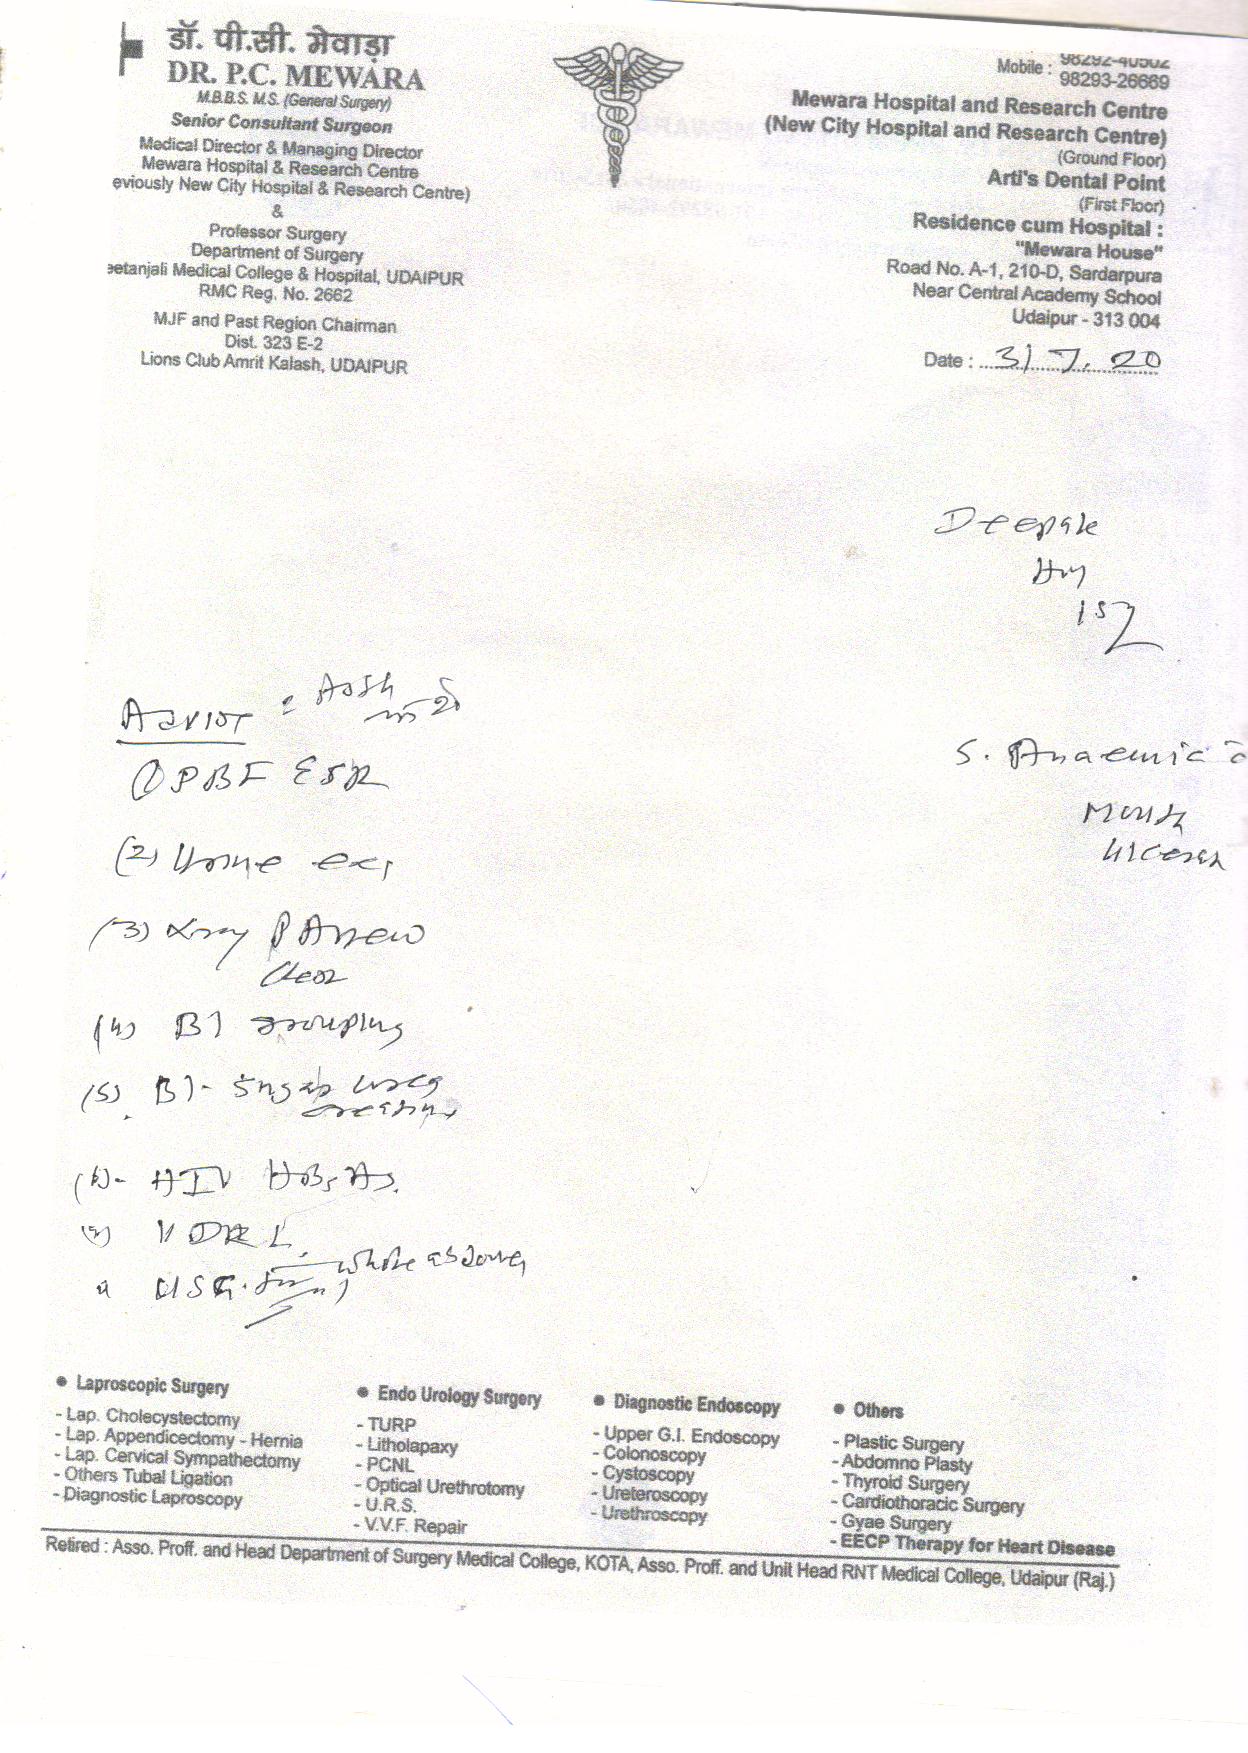 डॉ. पी.सी. मेवाड़ा
DR. P.C. MEWARA
M.B.B.S. M.S. (General Surgery)
Senior Consultant Surgeon
Medical Director & Managing Director
Mewara Hospital & Research Centre
eviously New City Hospital & Research Centre)
&
Professor Surgery
Department of Surgery
eetanjali Medical College & Hospital, UDAIPUR
RMC Reg. No. 2662
MJF and Past Region Chairman
Dist. 323 E-2
Lions Club Amrit Kalash, UDAIPUR
Mobile : 98292-40502
98293-26669
Mewara Hospital and Research Centre
(New City Hospital and Research Centre)
(Ground Floor)
Arti's Dental Point
(First Floor)
Residence cum Hospital :
"Mewara House"
Road No. A-1, 210-D, Sardarpura
Near Central Academy School
Udaipur - 313 004
Date : 31.7.20
Deepak
S. Anaemic c̄
Mouth
ulcer
Advise
(1) PBF ESR
(2) Urine
(3) Xray PA view
Chest
(4) Bl grouping
(5) Bl- Sugar urea
creatinine
(6)- HIV HBsAg
VDRL
USG. whole abdomen
● Laproscopic Surgery
- Lap. Cholecystectomy
- Lap. Appendicectomy - Hernia
- Lap. Cervical Sympathectomy
- Others Tubal Ligation
- Diagnostic Laproscopy
● Endo Urology Surgery
- TURP
- Litholapaxy
- PCNL
- Optical Urethrotomy
- U.R.S.
- V.V.F. Repair
● Diagnostic Endoscopy
- Upper G.I. Endoscopy
- Colonoscopy
- Cystoscopy
- Ureteroscopy
- Urethroscopy
● Others
- Plastic Surgery
- Abdomno Plasty
- Thyroid Surgery
- Cardiothoracic Surgery
- Gyae Surgery
- EECP Therapy for Heart Disease
Retired : Asso. Proff. and Head Department of Surgery Medical College, KOTA, Asso. Proff. and Unit Head RNT Medical College, Udaipur (Raj.)